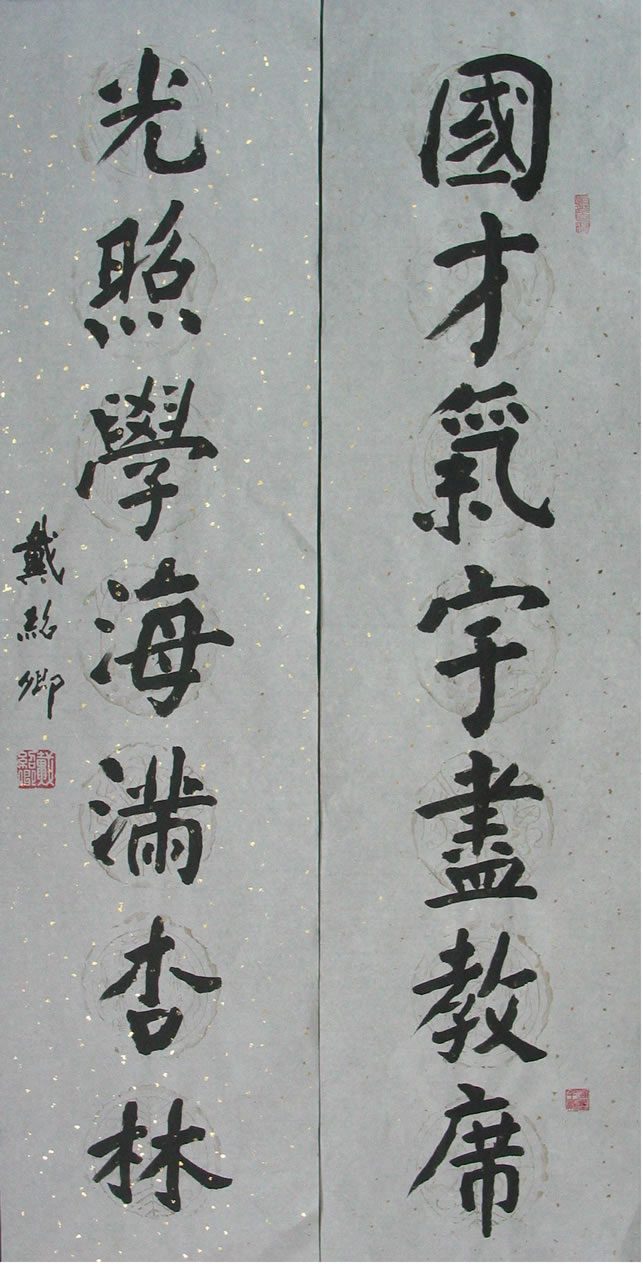 國才氣宇盡教席
光照學海滿杏林
戴紹卿